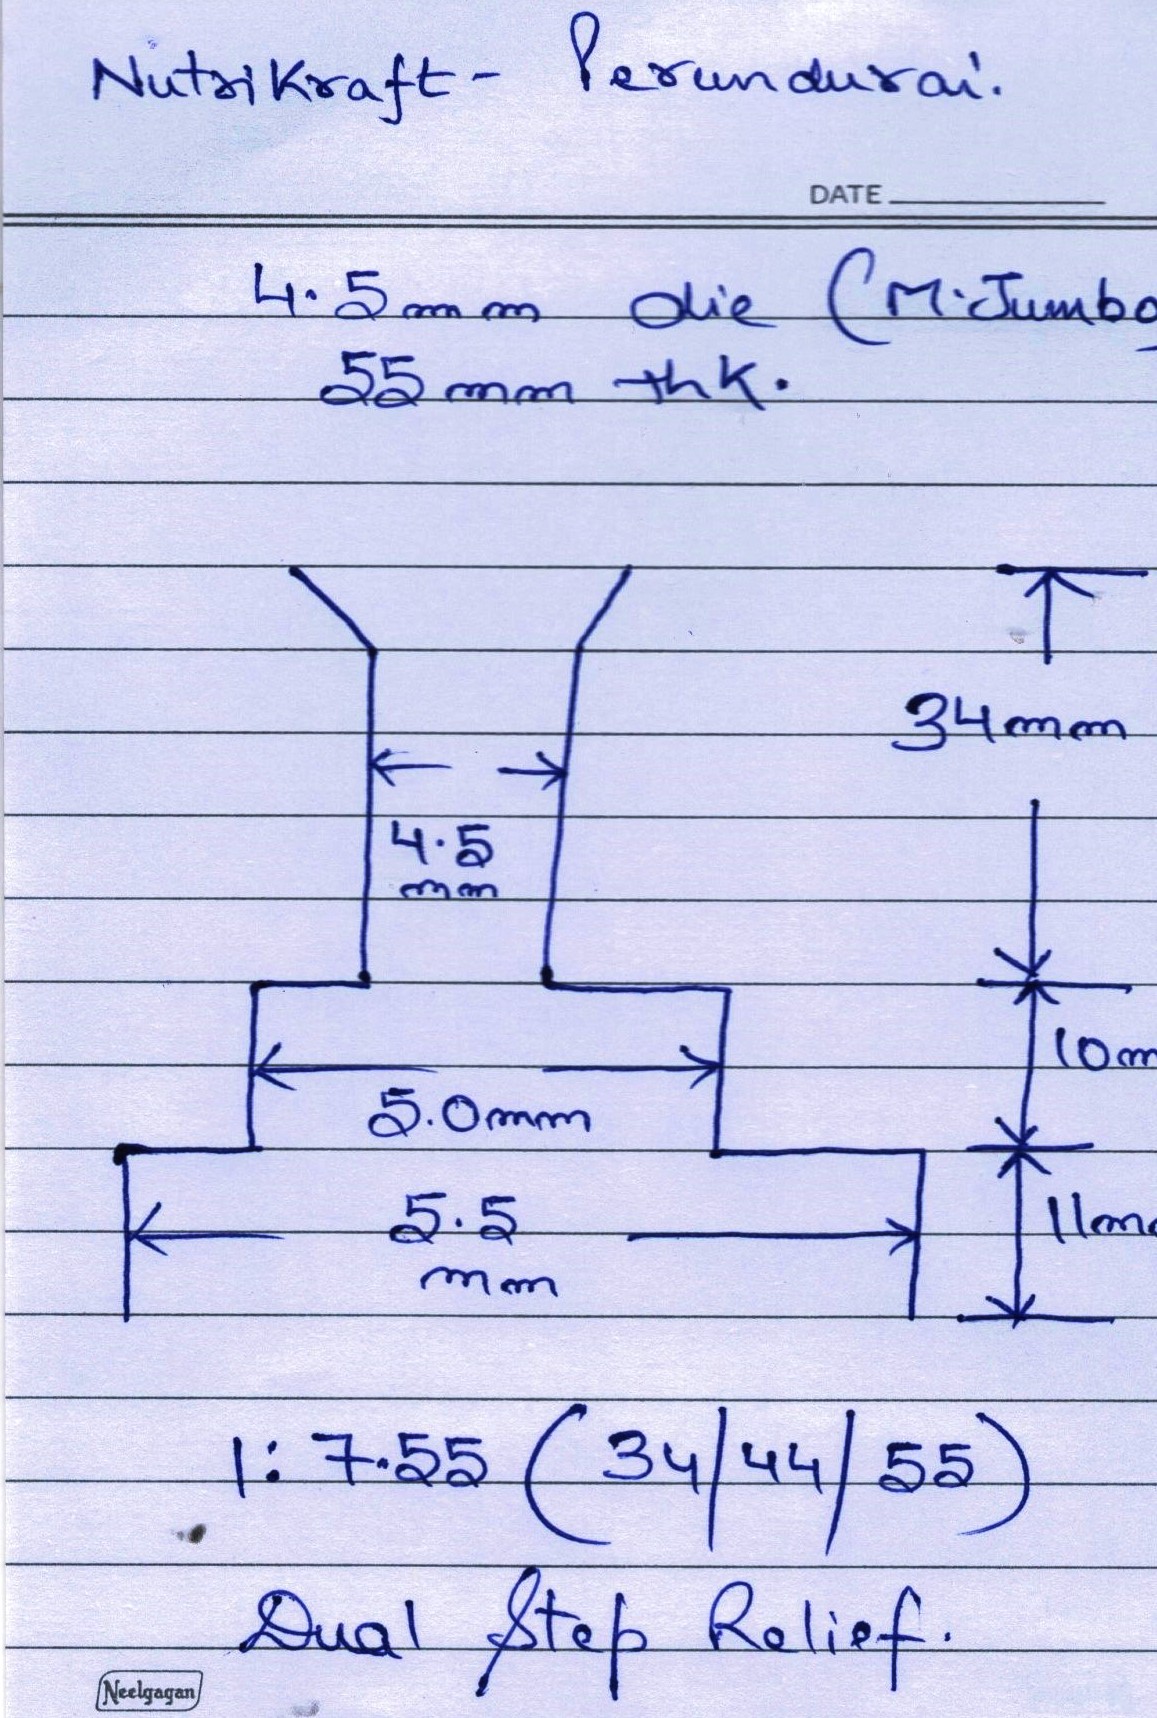 NutriKraft - Perundurai.
DATE
4.5mm die (M.Jumbo)
55mm thk.
34mm
4.5
mm
10m
5.0mm
5.5
11m
mm
1: 7.55 (34/44/55)
Dual Step Relief.
Neelgagan